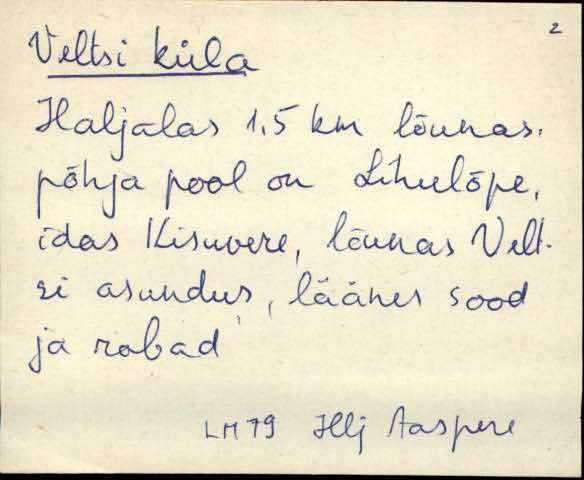 2
Veltsi küla
Haljalas 1,5 km lõunas.
põhja pool on Lihulõpe,
idas Kisuvere, lõunas Velt-
si asundus, läänes sood
ja rabad
LM 79 Hlj Aaspere